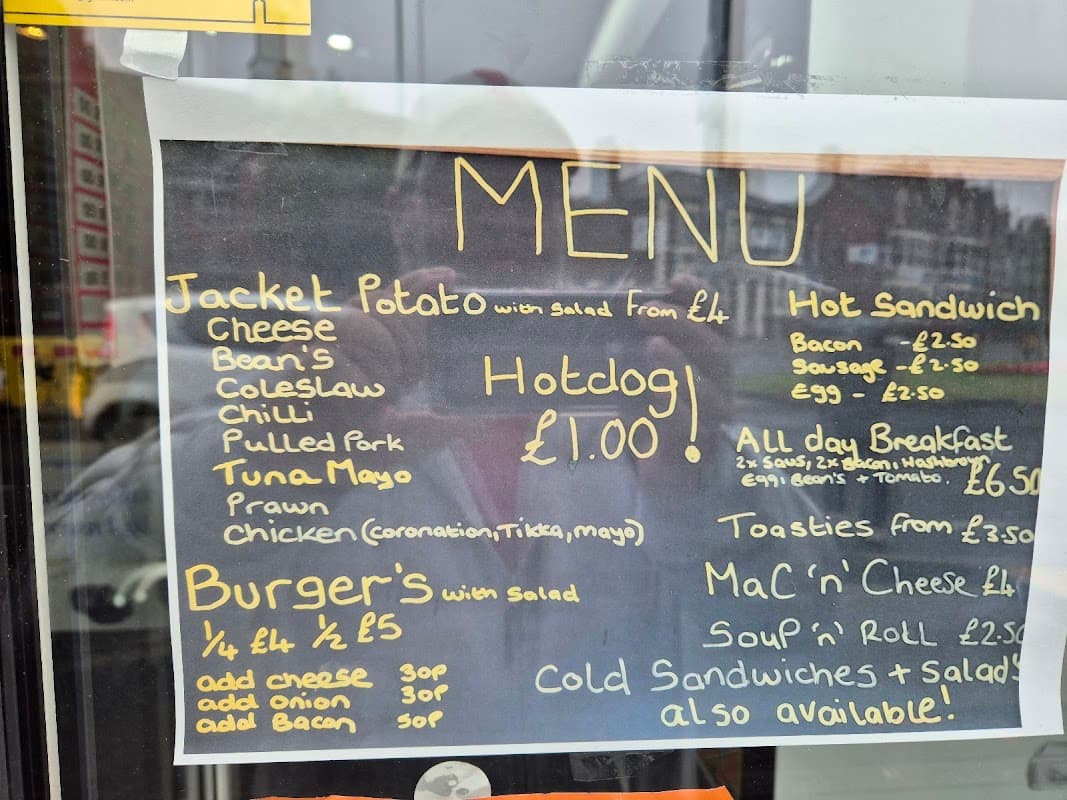 MENU
Jacket Potato with salad From £4
Cheese
Bean's
Coleslaw
Chilli
Pulled Pork
Tuna Mayo
Prawn
Chicken (Coronation, Tikka, mayo)
Burger's with salad
1/4 £4 1/2 £5
add cheese 30p
add onion 30p
add Bacon 50p
Hotdog!
£1.00
Hot Sandwich
Bacon - £2.50
Sausage - £2.50
Egg - £2.50
ALL day Breakfast
2x Saus, 2x Bacon, Hashbrown
Egg, Bean's + Tomato. £6.50
Toasties from £3.50
MaC 'n' Cheese £4
Soup 'n' Roll £2.50
Cold Sandwiches + Salad's
also available!